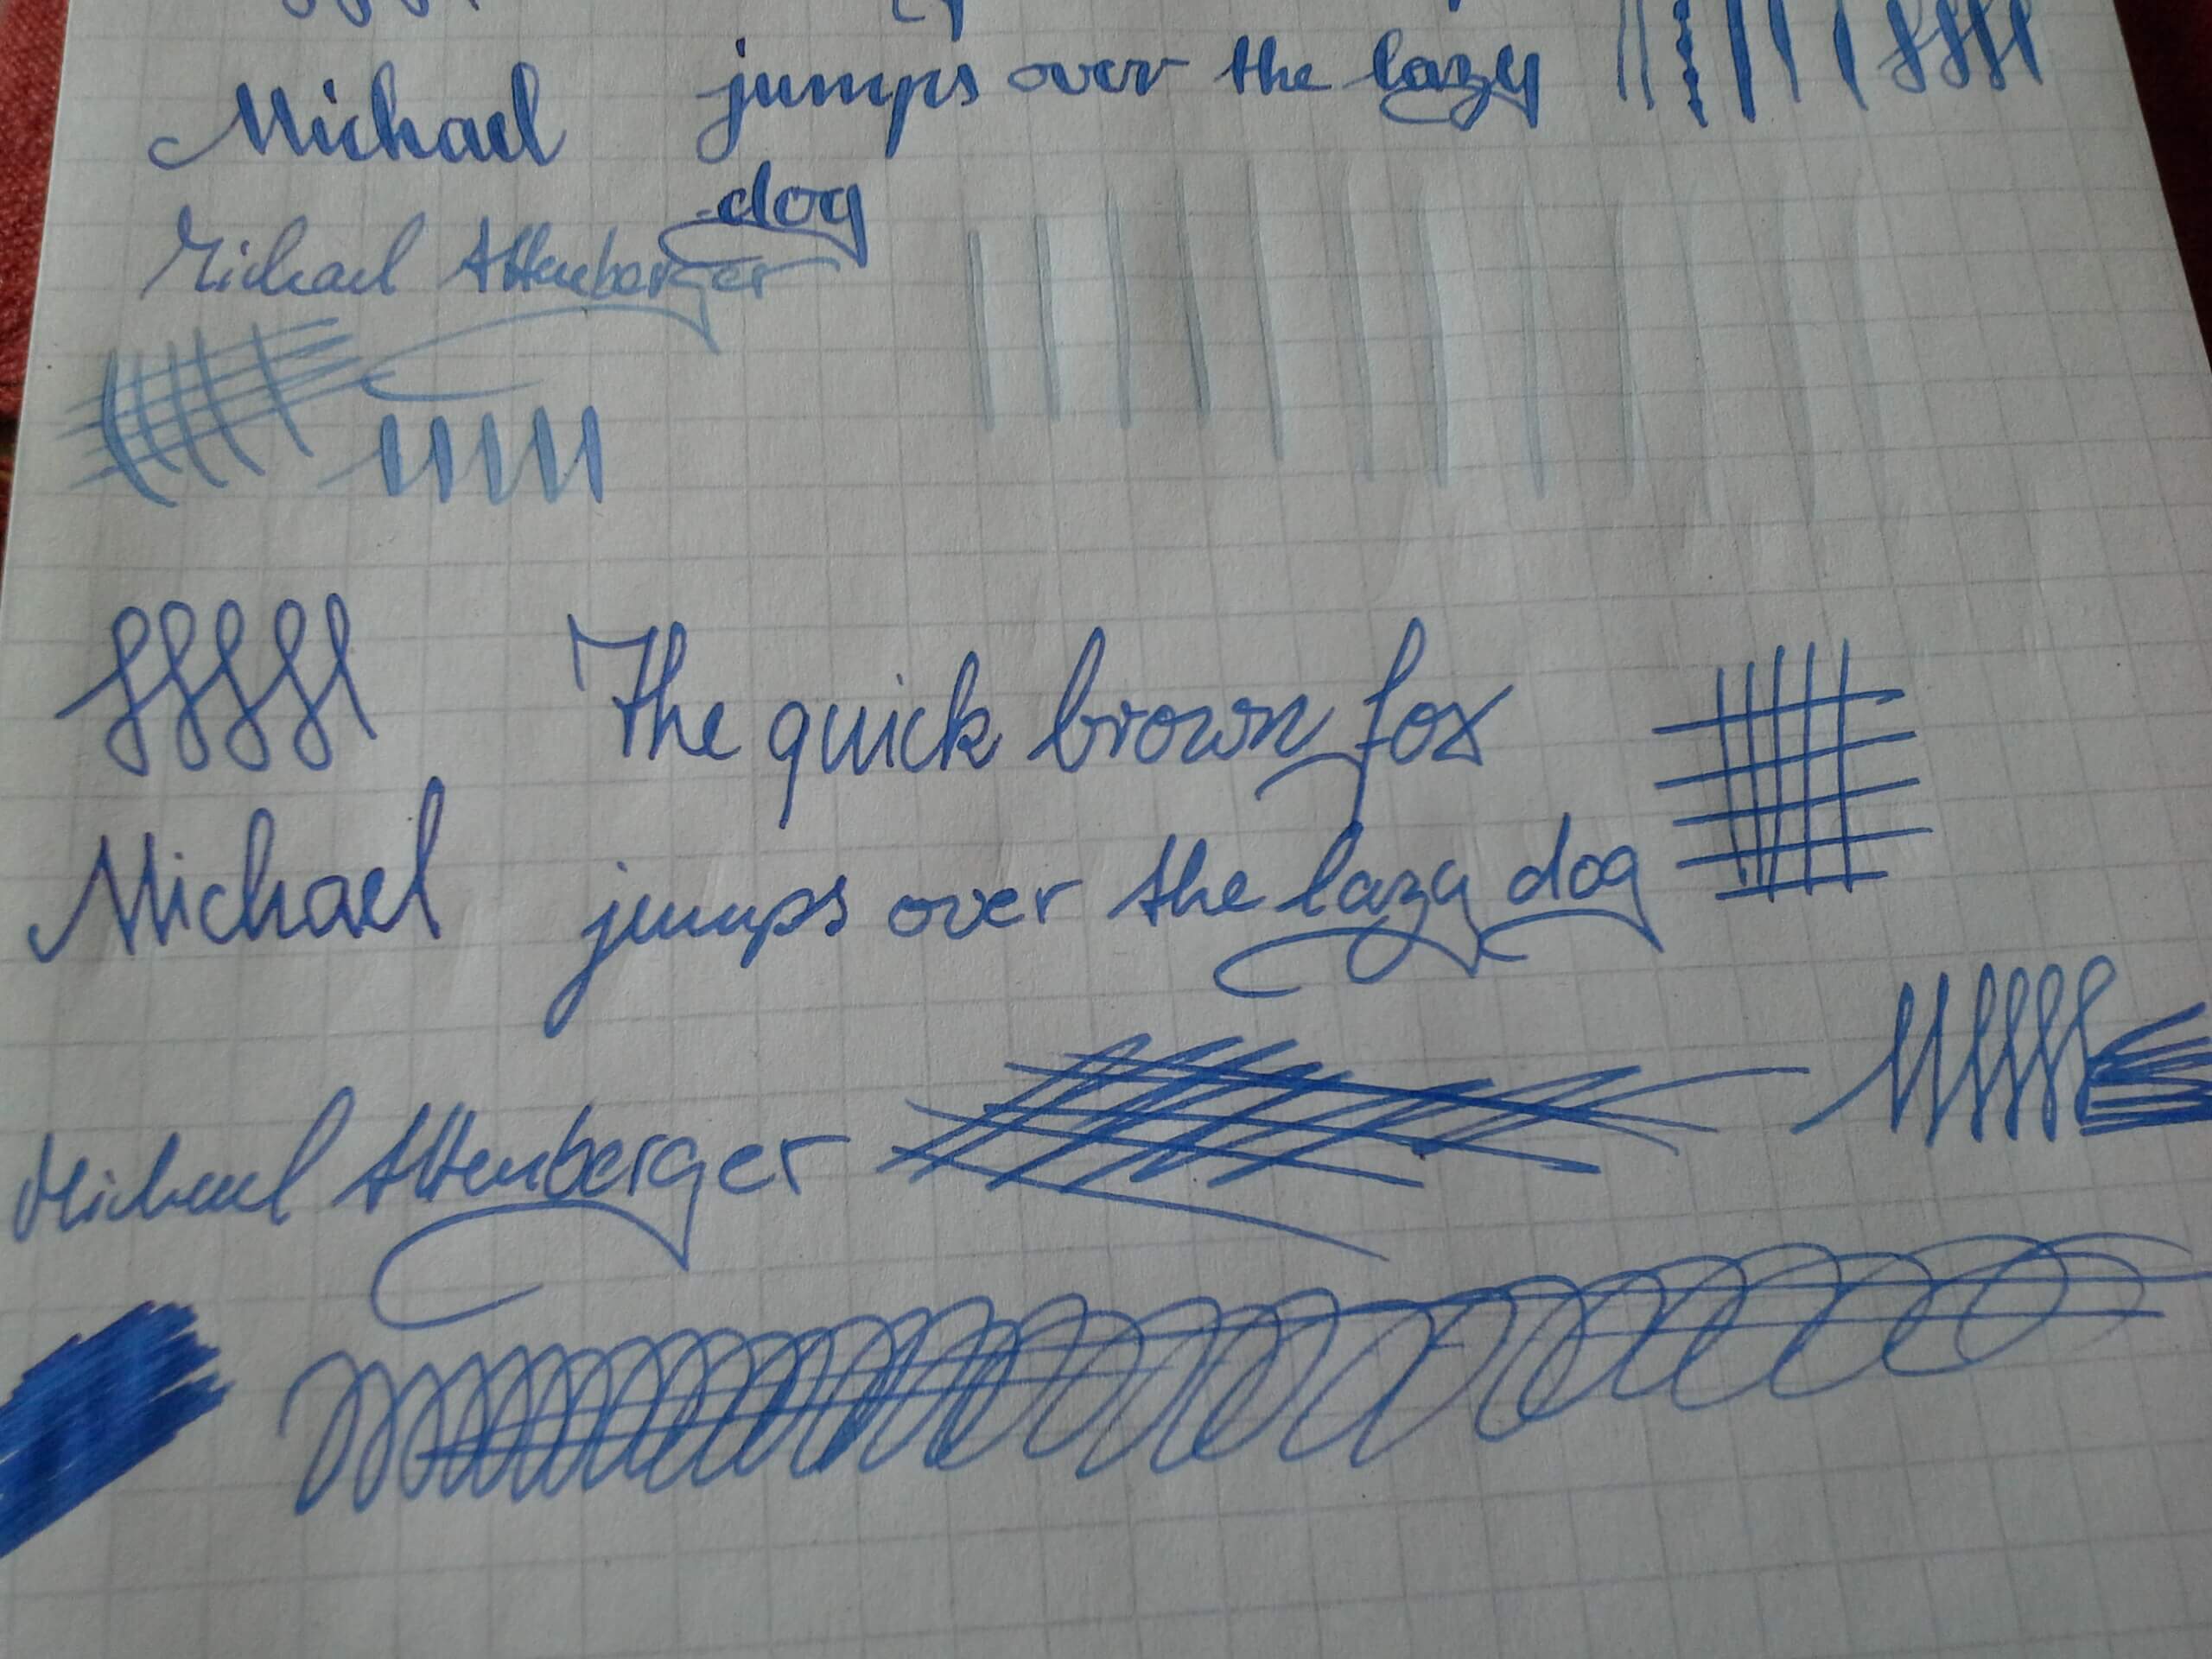 Michael jumps over the lazy
dog
Michael Attenberger
The quick brown fox
Michael jumps over the lazy dog
Michael Attenberger